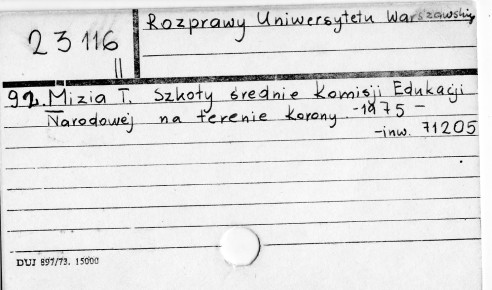 23116
II
Rozprawy Uniwersytetu Warszawskiego
92. Mizia T. Szkoły średnie Komisji Edukacji
Narodowej na terenie Korony. -1975-
-inw. 71205
DUJ 897/73. 15000